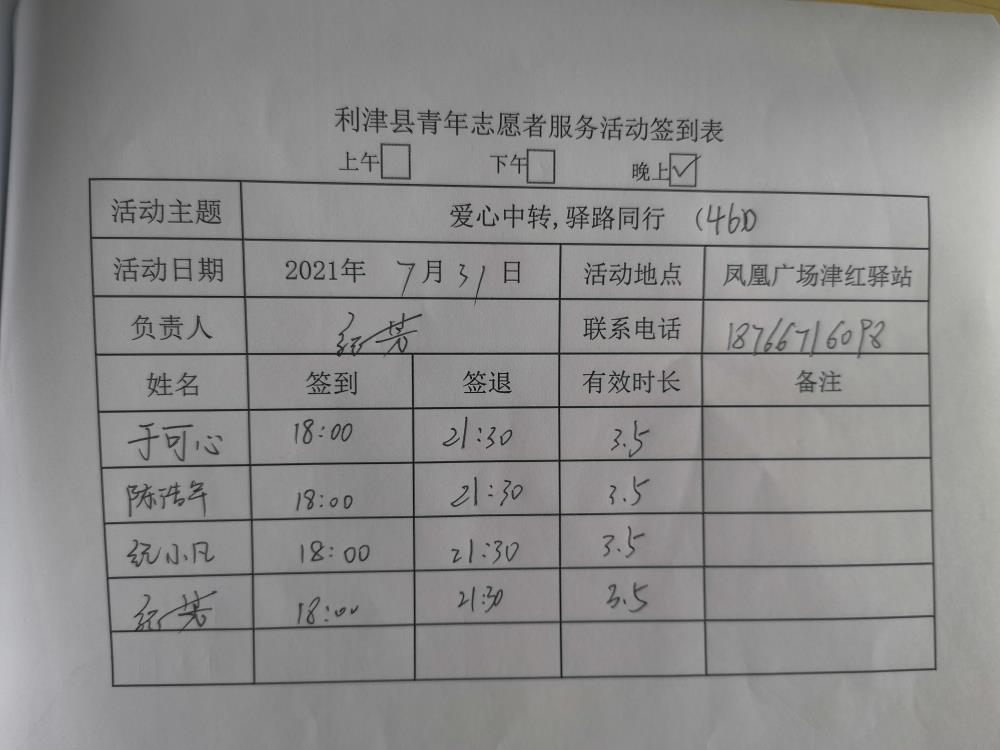 利津县青年志愿者服务活动签到表
上午 下午 晚上
活动主题 爱心中转,驿路同行
活动日期 2021年 7月31日 活动地点 凤凰广场津红驿站
负责人 联系电话 18766716098
姓名 签到 签退 有效时长 备注
于可心 18:00 21:30 3.5
陈浩年 18:00 21:30 3.5
纪小凡 18:00 21:30 3.5
18:00 21:30 3.5